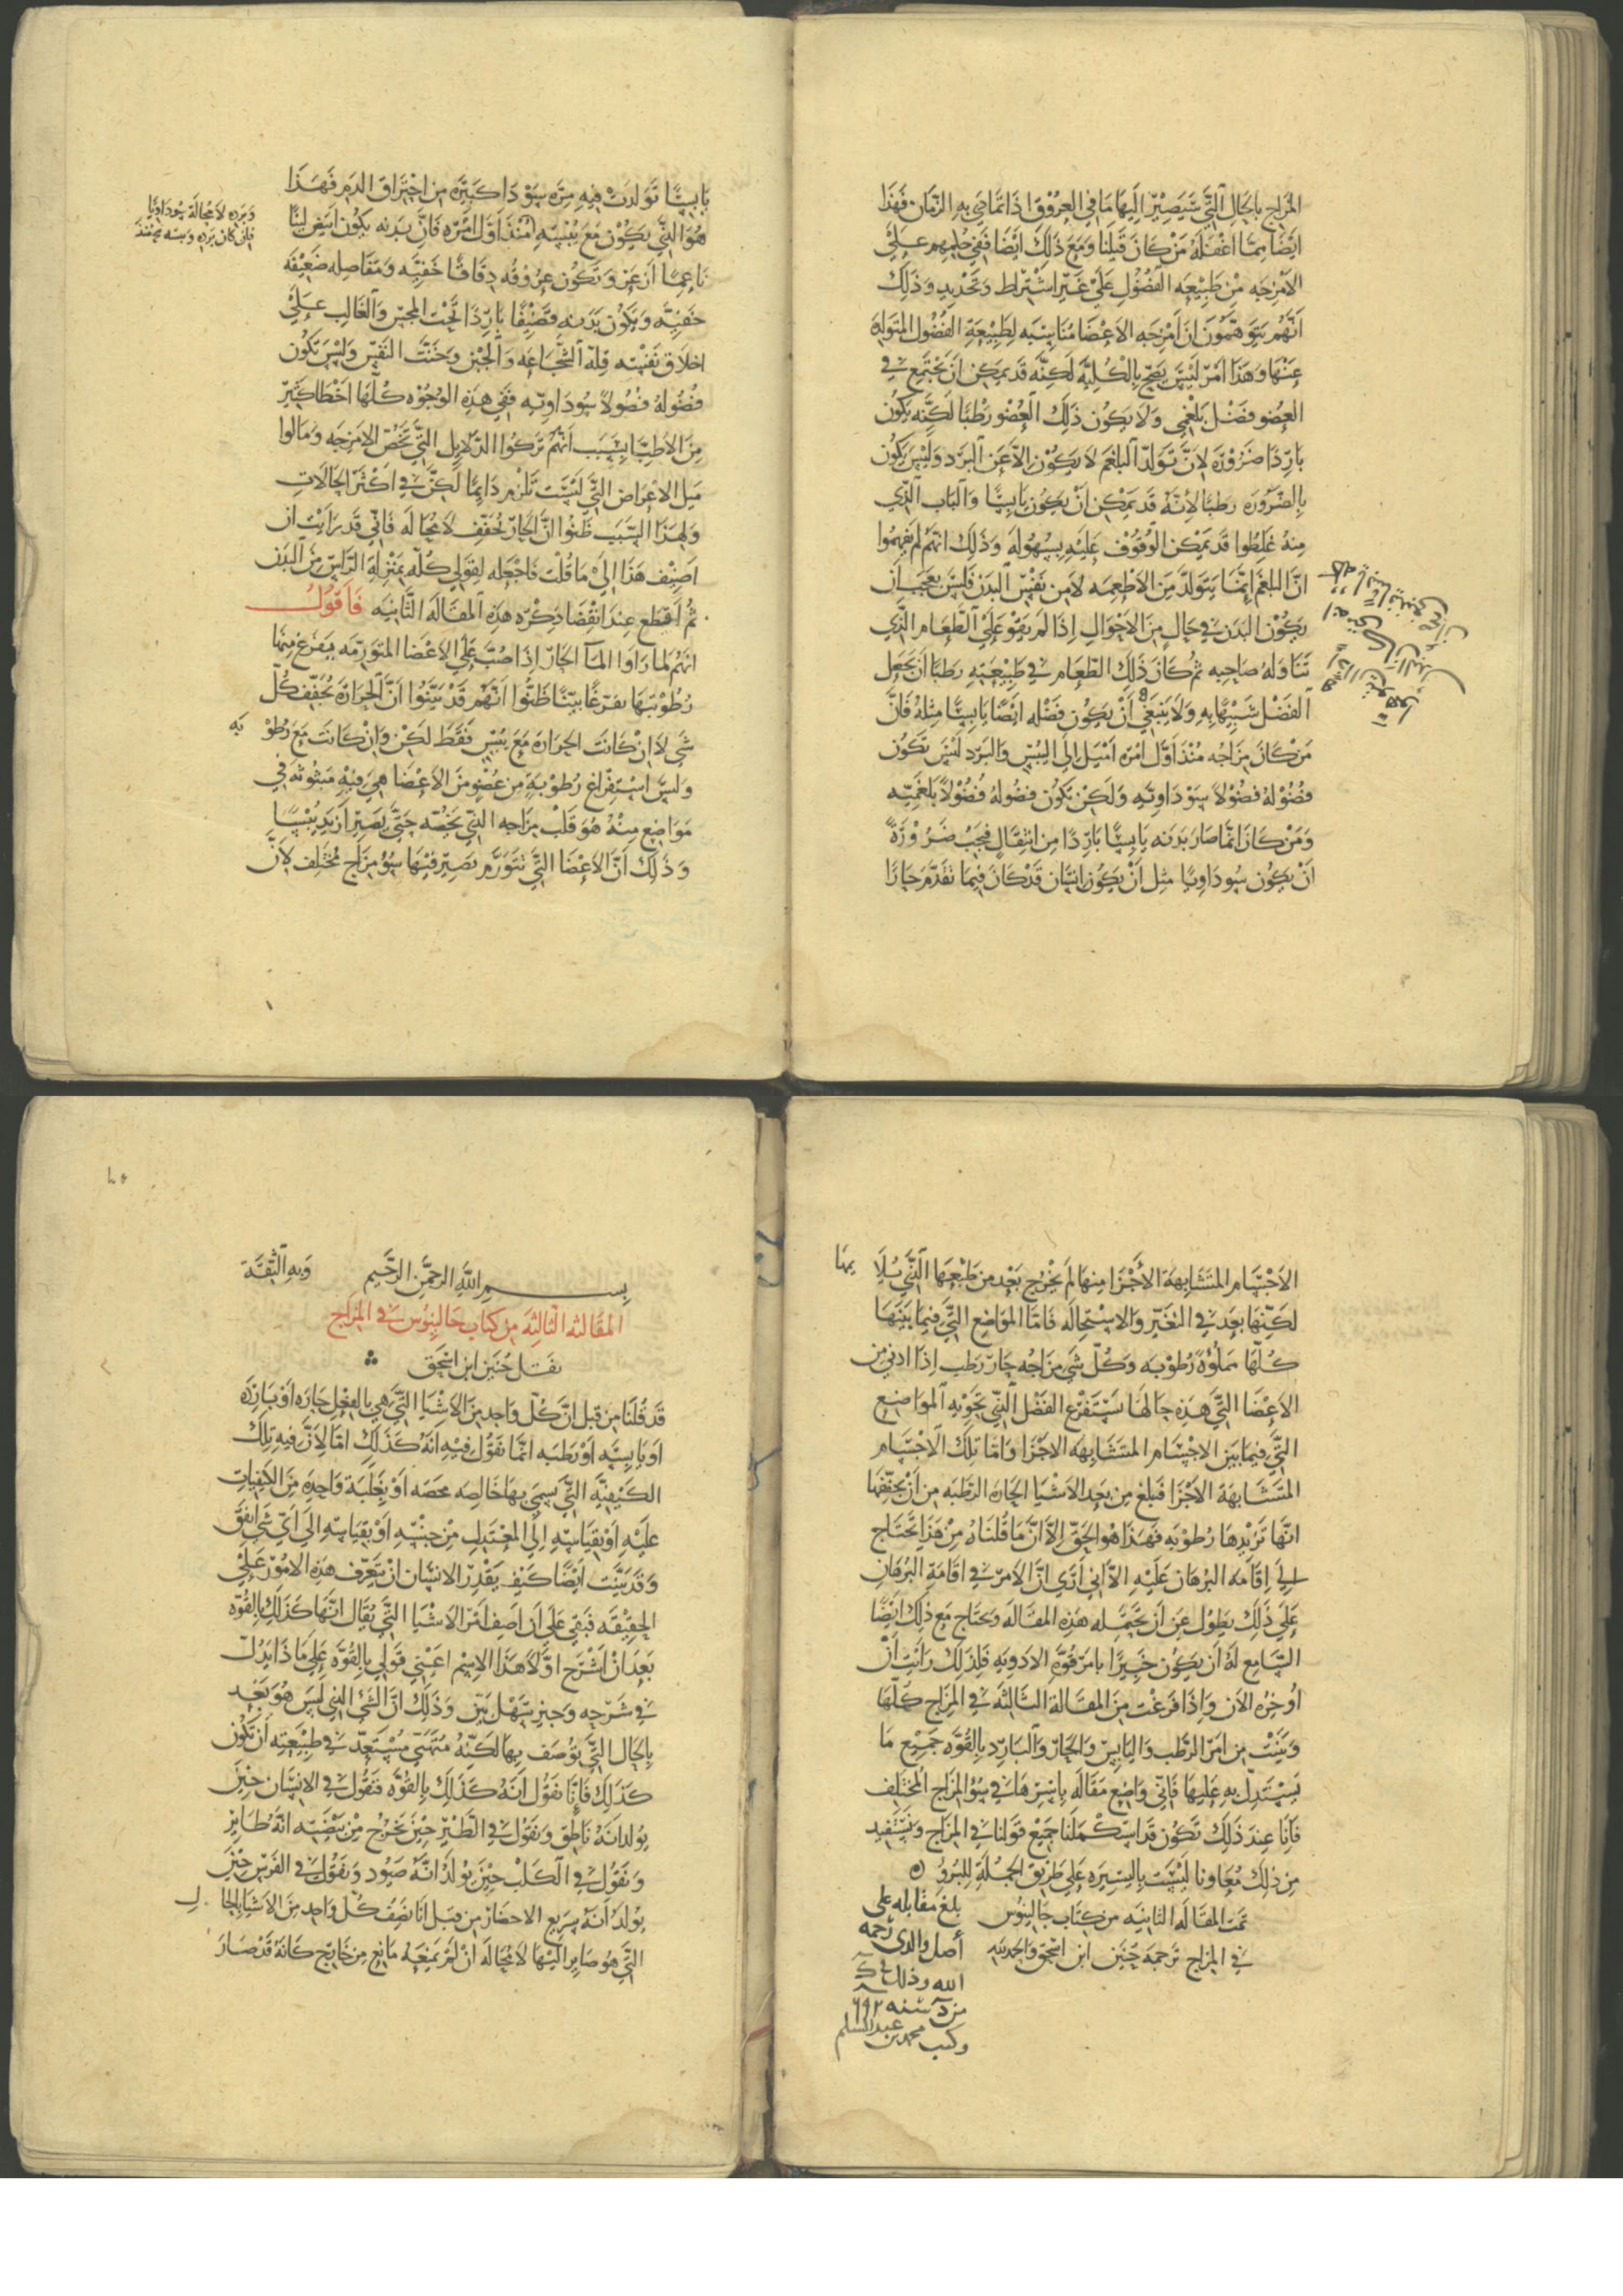 المزاج بالحال التي سيصير اليها ما في العروق اذا تمادي به الزمان فهذا
ايضا مما اغفله من كان قبلنا ومع ذلك ايضا ففي حكمهم علي
الامزجه من طبيعه الفضول علي غير اشتراط وتحديد وذلك
انهم يتوهمون ان امزجه الاعضا مناسبه لطبيعة الفضول المتولده
عنها وهذا امر ليس يصح بالكليه لكنه قد يمكن ان يجتمع في
العضو فضل بلغمي ولا يكون ذلك العضو رطبا لكنه يكون
باردا ضرورة لان تولد البلغم لا يكون الا عن البرد وليس يكون
بالضروره رطبا لانه قد يمكن ان يكون يابسا والباب الذي
منه غلطوا قد يمكن الوقوف عليه بسهوله وذلك انهم لم يفهموا
ان البلغم انما يتولد من الاطعمه لا من نفس البدن فليس بعجب ان
يكون البدن في حال من الاحوال اذا لم يقو علي الطعام الذي
تناوله صاحبه ثم كان ذلك الطعام في طبيعته رطبا ان يجعل
الفضل شبيها به ولا ينبغي ان يكون فضله ايضا يابسا مثله فان
من كان مزاجه منذ اول امره اميل الي اليبس والبرد ليس تكون
فضوله فضولا سوداويه ولكن تكون فضوله فضولا بلغميه
ومن كان انما صار بدنه يابسا باردا من انتقال فيجب ضرورة
ان يكون سوداويا مثل ان يكون انسان قد كان فيما تقدم حارا
يابسا تولدت فيه مره سودا كثيره من احتراق الدم فهذا
هو الذي يكون مع يبسه منذ اول امره فان بدنه يكون ابيض لينا
وبرده لا محالة سوداويا
فان كان برده ويبسه منذ
ناعما ازعر وتكون عروقه دقاقا خفيه ومفاصله ضعيفه
خفيه ويكون بدنه قضيفا باردا تحت المجس والغالب علي
اخلاق نفسه قلة الشجاعه والجبن وخبث النفس وليس تكون
فضوله فضولا سوداويه ففي هذه الوجوه كلها اخطا كثير
من الاطبا بسبب انهم تركوا الدلايل التي تخص الامزجه ومالوا
ميل الاعراض التي ليست تلزم دايما لكن في اكثر الحالات
ولهذا السبب ظنوا ان الحار يجفف لا محاله فاني قد رايت ان
اضيف هذا الي ما قلت فاجعله لقولي كله بمنزلة الراس من البدن
ثم اقطع عند انقضا ذكره هذه المقاله الثانيه فاقول
انهم لما راوا الما الحار اذا صب علي الاعضا المتورمه يفرغ منها
رطوبتها تفرغا بينا ظنوا انهم قد بينوا ان الحرارة تجفف كل
شي لا ان كانت الحرارة مع يبس فقط لكن وان كانت مع رطو به
وليس استفراغ رطوبة من عضو من الاعضا هي فيه مبثوثه في
مواضع منه هو قلب مزاجه الذي يخصه حتي يصير ازيد يبسا
وذلك ان الاعضا التي تتورم تصير فيها سوء مزاج مختلف لان
الاجسام المتشابهة الاجزا منها لم يخرج بعد من طبعها التي يلا يمها
لكنها بعد في التغير والاستحاله فاما المواضع التي فيما بينها
كلها مملؤه رطوبه وكل شي مزاجه حار رطب اذا ادني من
الاعضا التي هذه حالها يستفرغ الفضل الذي تحويه المواضع
التي فيما بين الاجسام المتشابهه الاجزا واما تلك الاجسام
المتشابهة الاجزا فبلغ من بعد الاشيا الحاره الرطبه من ان يجففها
انها تزيدها رطوبه فهذا هو الحق الا ان ما قلناه من هذا يحتاج
الي اقامه البرهان عليه الا اني اري ان الامر في اقامة البرهان
علي ذلك يطول عن ان تحتمله هذه المقاله ويحتاج مع ذلك ايضا
السامع له ان يكون خبيرا بامر قوه الادويه فلذلك رايت ان
اوخره الان واذا فرغت من المقالة الثالثه في المزاج كلها
وبينت من امر الرطب واليابس والحار والبارد بالقوه جميع ما
يستدل به عليها فاني واضع مقاله باسرها في سوء المزاج المختلف
فانا عند ذلك نكون قد استكملنا جميع قولنا في المزاج ونستفيد
من ذلك معاونا ليست باليسيره علي طريق الحيلة للبرو
تمت المقاله الثانيه من كتاب جالينوس
في المزاج ترجمه حنين ابن اسحق والحمد لله
بلغ مقابله على
أصل والدي رحمه
الله وذلك في
سنه ٦٩٢
وكتب محمد بن عبد السلم
بسم الله الرحمن الرحيم وبه الثقة
المقالة الثالثه من كتاب جالينوس في المزاج
نقل حنين ابن اسحق
قد قلنا من قبل ان كل واحد من الاشيا التي هي بالفعل حاره او بارده
او يابسه او رطبه انما نقول فيه انه كذلك اما لان فيه تلك
الكيفيه التي يسمي بها خالصه محضه او بغلبة واحده من الكيفيات
عليه او بقياسه الي المعتدل من جنسه او بقياسه الي اي شي اتفق
وقد بينت ايضا كيف يقدر الانسان ان يتعرف هذه الامور علي
الحقيقه فبقي علي ان اصف امر الاشيا التي يقال انها كذلك بالقوه
بعد ان اشرح اولا هذا الاسم اعني قولي بالقوه علي ما ذا يدل
في شرحه وجيز سهل بين وذلك ان الشي الذي ليس هو بعد
بالحال التي يوصف بها لكنه متهيي مستعد في طبيعته ان تكون
كذلك فانا نقول انه كذلك بالقوه فنقول في الانسان حين
يولد انه ناطق ونقول في الطير حين يخرج من بيضه انه طاير
ونقول في الكلب حين يولد انه صيود ونقول في الفرس حين
يولد انه سريع الاحضار من قبل انا نصف كل واحد من الاشيا بالحا ل
التي هو صاير اليها لا محالة ان لم يمنعه مانع من خارج كانه قد صار